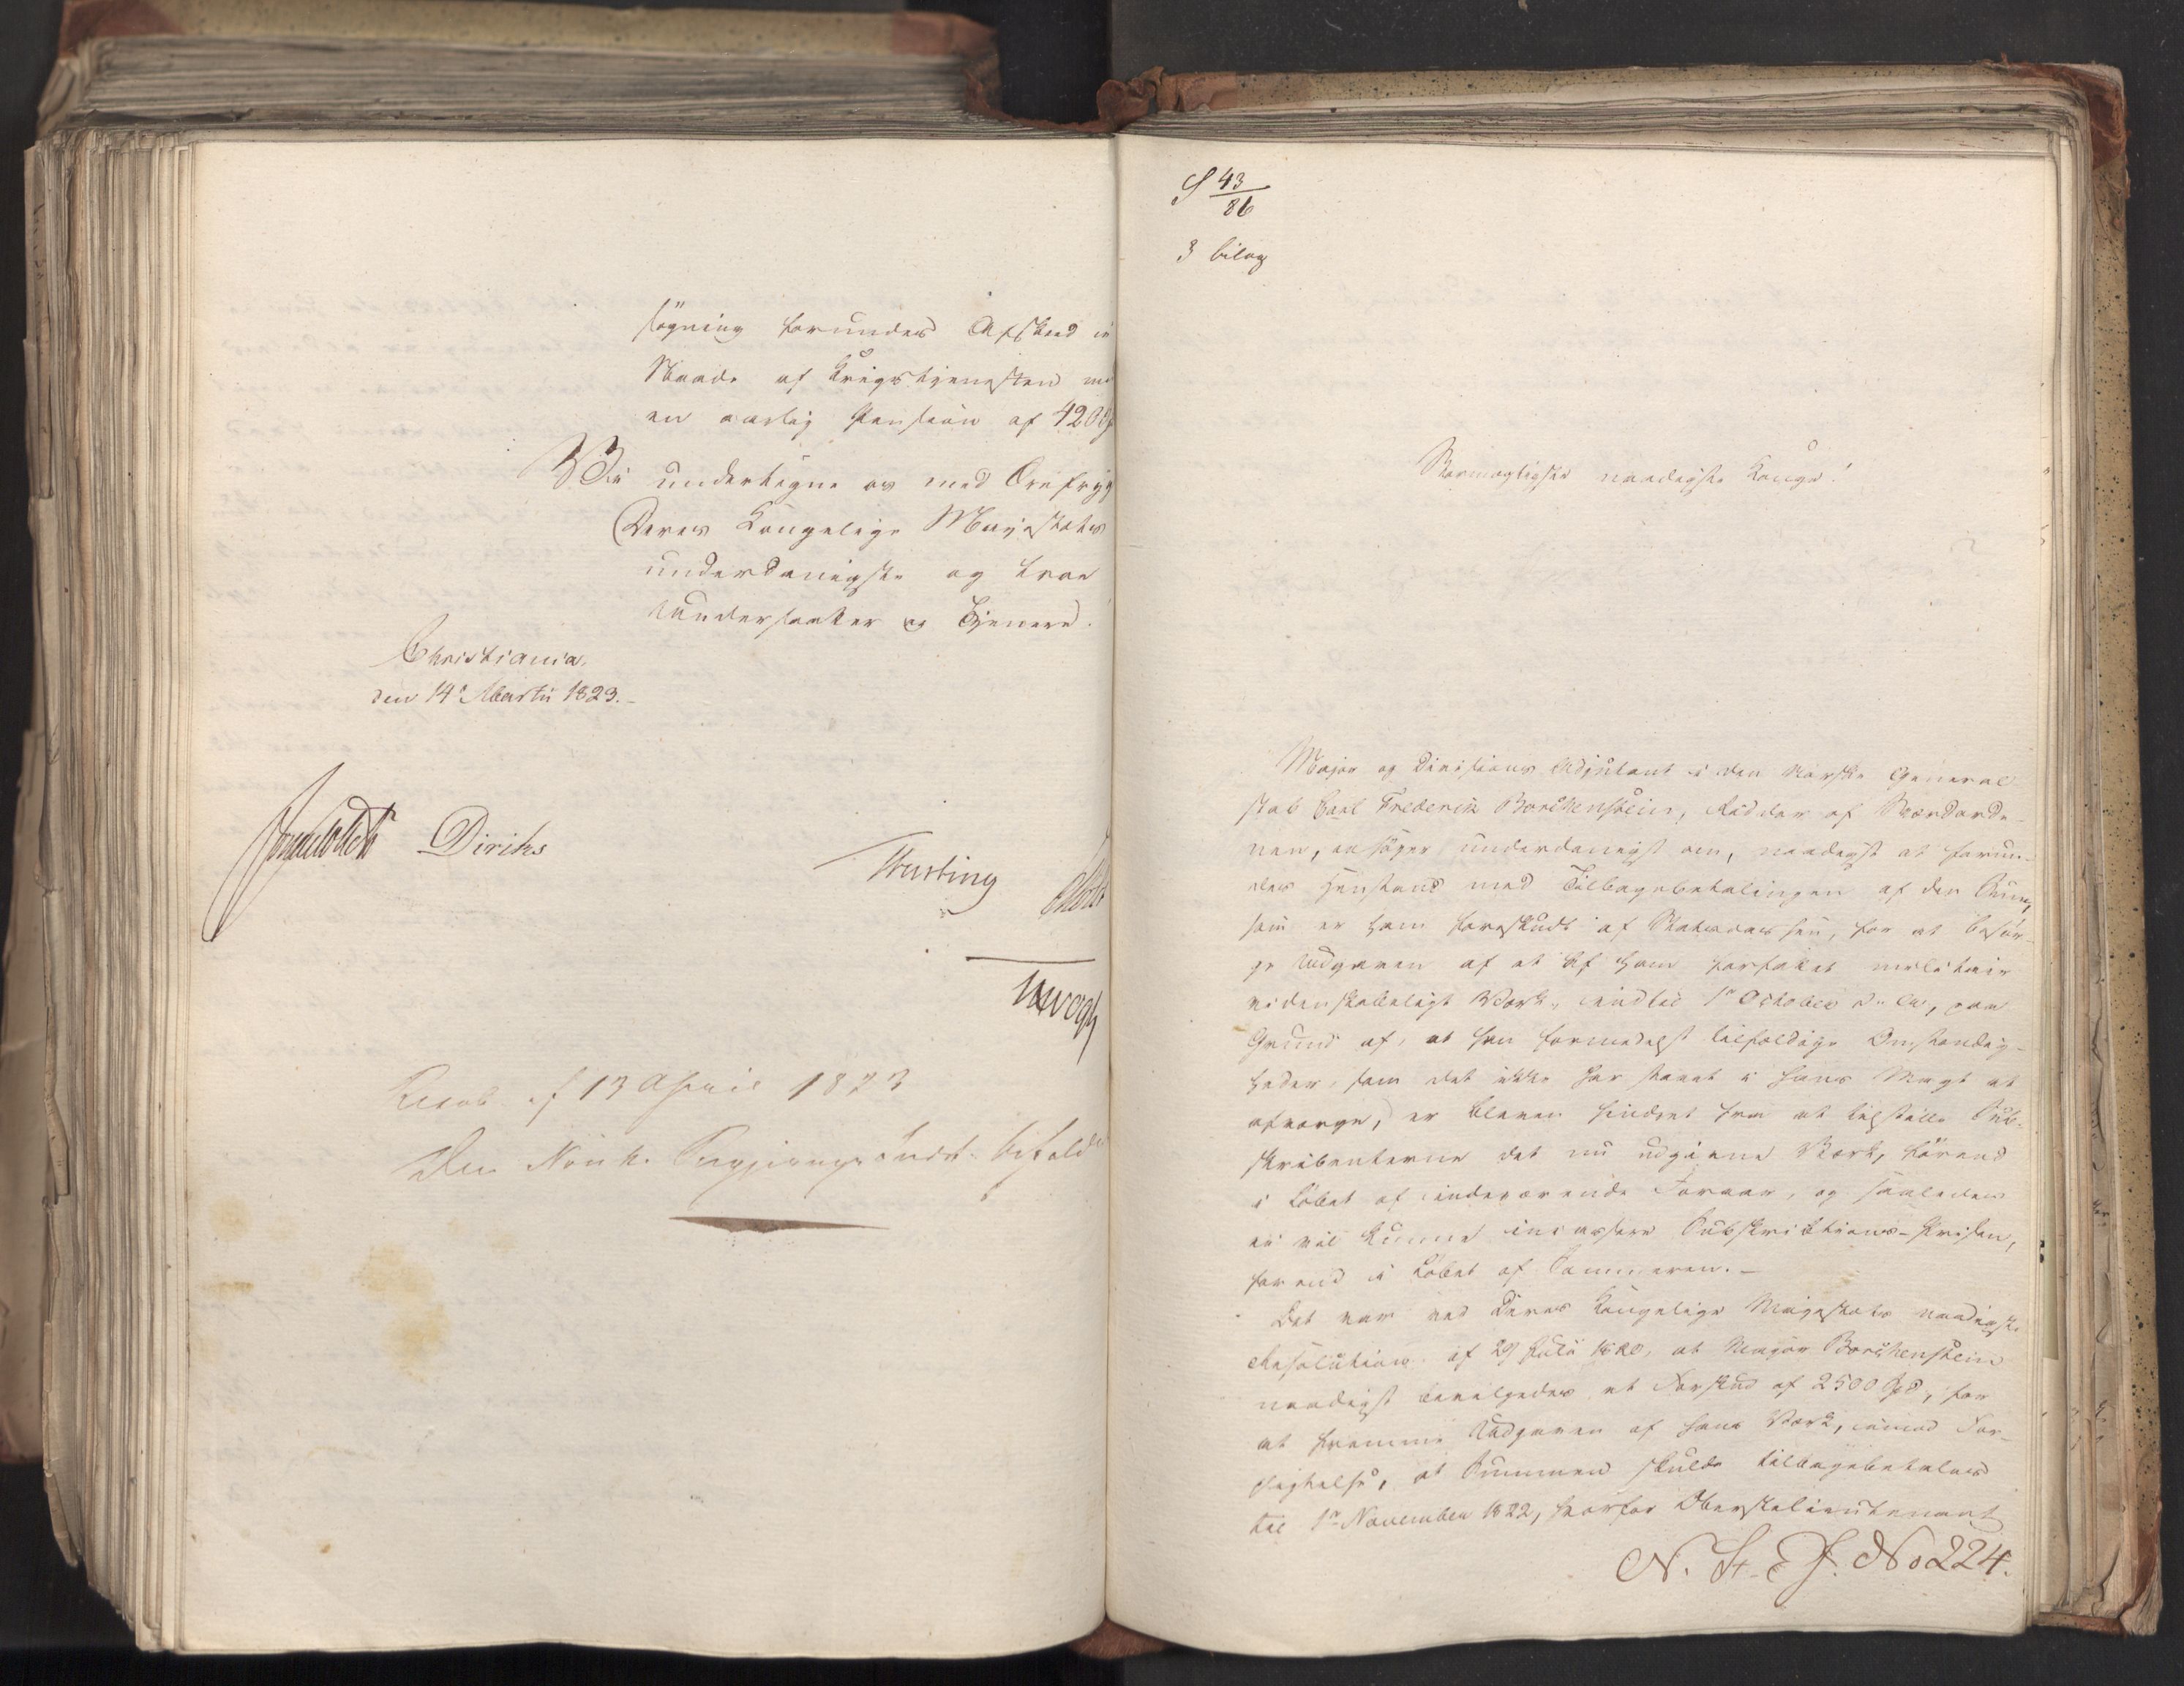 søgning forundes Afskeed i
Naade af Krigstjenesten med
en aarlig Pension af 420
Vi undertegne os med Ærefrygt
Deres Kongelige Majestæts
underdanigste og troe
Undersaatter og Tjenere.
Christiania,
den 14de Martii 1823.
Diriks
Treschow
Resol. af 13 April 1823
Den Norske Regjerings Indst. bifaldes
S 43/86
3 bilag
Stormægtigste naadigste Konge!
Major og Divisions Adjutant i den Norske General-
stab Carl Frederik Borchenstein, Ridder af Sværdorde-
nen, ansøger underdanigst om, naadigst at forun-
des Henstand med Tilbagebetalingen af den Sum,
som er ham forskudt af Statscassen, for at besør-
ge Udgaven af et af ham forfattet militair
videnskabeligt Værk, indtil 1ste October d. A., paa
Grund af, at han formedelst tilfældige Omstændig-
heder, som det ikke har staaet i hans Magt at
afværge, er bleven hindret fra at tilstille Sub-
skribenterne det nu udgivne Værk, førend
i Løbet af indeværende Foraar, og saaledes
ei vil kunne incassere Subskriptions-Prisen,
førend i Løbet af Sommeren.-
Det var ved Deres Kongelige Majestæts naadigste
Resolution af 29 Juli 1820, at Major Borchenstein
naadigst bevilgedes et Forskud af 2500 Spd, for
at fremme Udgaven af hans Værk, imod For-
pligtelse, at Summen skulde tilbagebetales
til 1ste November 1822, hvorfor Oberstelieutenant
N. St. E. J. No 224.